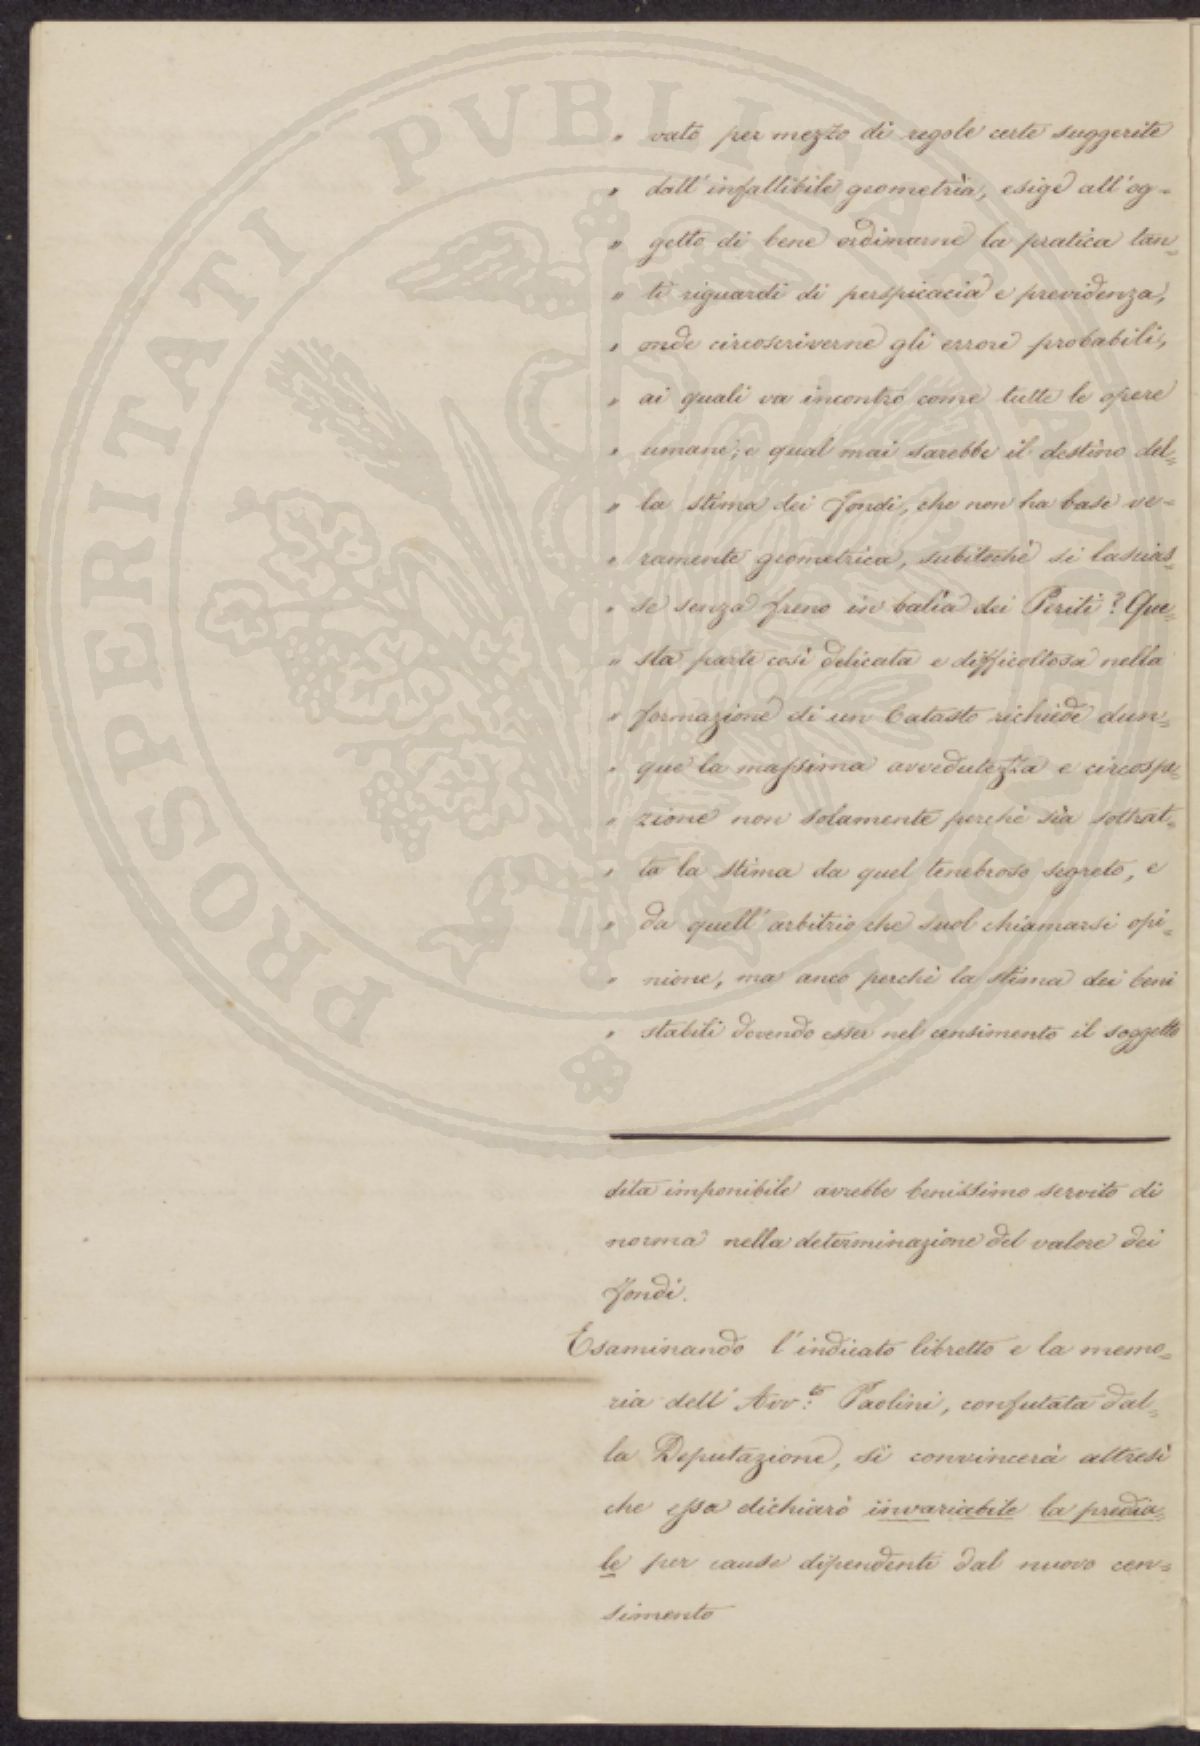 " vato per mezzo di regole certe suggerite
" dall'infallibile geometria, esige all'og=
" getto di bene ordinarne la pratica tan=
" ti riguardi di perspicacia e previdenza,
" onde circoscriverne gli errori probabili,
" ai quali va incontro come tutte le opere
" umane; e qual mai sarebbe il destino del=
" la stima dei fondi, che non ha base ve=
" ramente geometrica, subitochè si lascias=
" se senza freno in balìa dei Periti? Que=
" sta parte così delicata e difficoltosa nella
" formazione di un Catasto richiede dun=
" que la massima avvedutezza e circospe=
" zione non solamente perchè sia sottrat=
" ta la stima da quel tenebroso segreto, e
" da quell'arbitrio che suol chiamarsi opi=
" nione, ma anco perchè la stima dei beni
" stabili dovendo esser nel censimento il soggetto
dita imponibile avrebbe benissimo servito di
norma nella determinazione del valore dei
fondi.
Esaminando l'indicato libretto e la memo=
ria dell'Avv:to Paolini, confutata dal=
la Deputazione, si convincerà altresì
che essa dichiarò invariabile la predia=
le per cause dipendenti dal nuovo cen=
simento
PROSPERITATI PVBLICAE